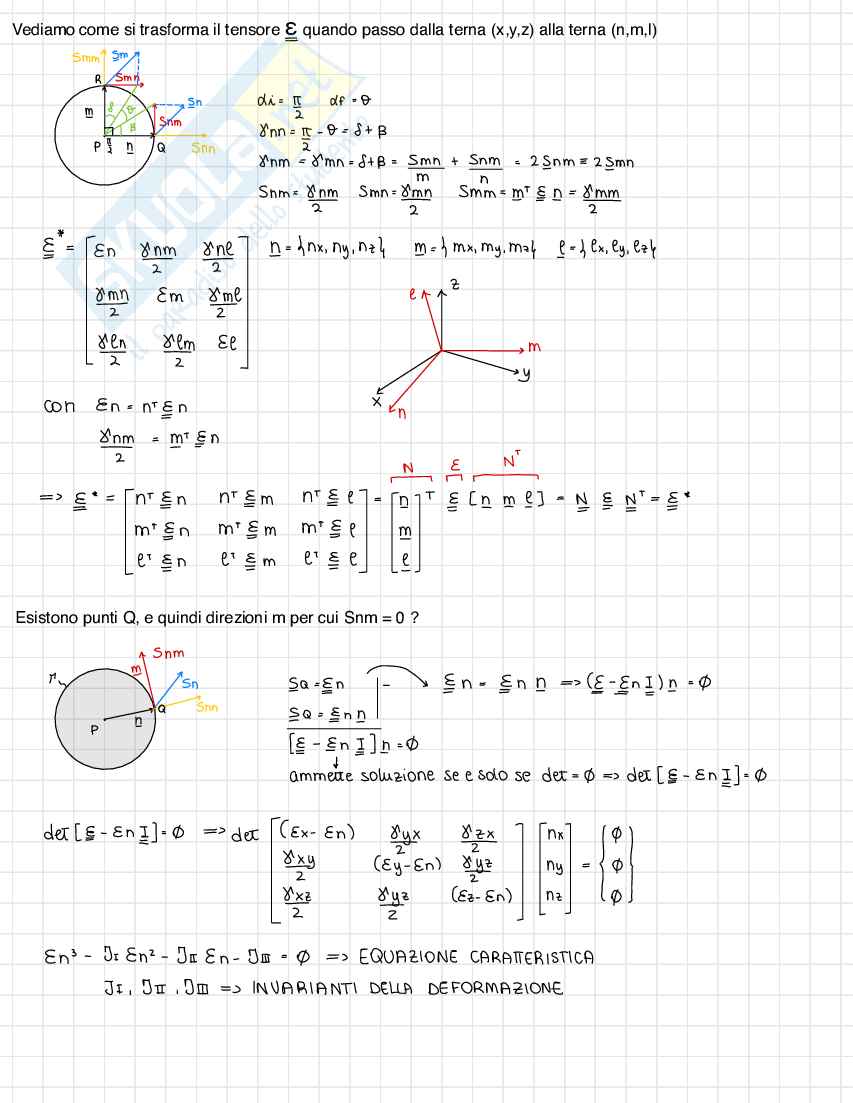 Vediamo come si trasforma il tensore ε quando passo dalla terna (x,y,z) alla terna (n,m,l)
Smm Sm
R Smn
m δ θ Sn
β Snm
P π/2 n Q Snn
αi = π/2 αf = θ
γnn = π/2 - θ = δ + β
γnm = γmn = δ+β = Smn/m + Snm/n = 2 Snm ≡ 2 Smn
Snm = γnm/2 Smn = γmn/2 Smm = mᵀ ε n = γmm/2
ε* = [ εn γnm/2 γne/2
γmn/2 εm γme/2
γℓn/2 γℓm/2 εℓ ]
n = { nx, ny, nz } m = { mx, my, mz } ℓ = { ℓx, ℓy, ℓz }
ℓ z
m
y
x
n
con εn = nᵀ ε n
γnm/2 = mᵀ ε n
N ε Nᵀ
=> ε* = [ nᵀ ε n nᵀ ε m nᵀ ε ℓ ] = [ n ]ᵀ ε [ n m ℓ ] = N ε Nᵀ = ε*
mᵀ ε n mᵀ ε m mᵀ ε ℓ m
ℓᵀ ε n ℓᵀ ε m ℓᵀ ε ℓ ℓ
Esistono punti Q, e quindi direzioni m per cui Snm = 0 ?
Snm
m
Sn
Q
Snn
n
P
SQ = ε n
SQ = εn n
-
[ε - εn I] n = ϕ
ε n = εn n => (ε - εn I) n = ϕ
ammette soluzione se e solo se det = ϕ => det [ε - εn I] = ϕ
det [ε - εn I] = ϕ => det [ (εx - εn) γyx/2 γzx/2 ] [ nx ] = { ϕ }
γxy/2 (εy - εn) γyz/2 ny ϕ
γxz/2 γyz/2 (εz - εn) nz ϕ
εn³ - JI εn² - JII εn - JIII = ϕ => EQUAZIONE CARATTERISTICA
JI, JII, JIII => INVARIANTI DELLA DEFORMAZIONE
SKUOLA.net
il paradiso dello studente